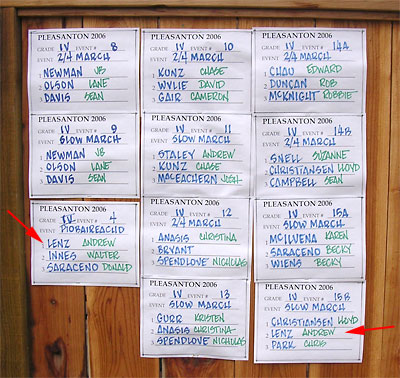 PLEASANTON 2006
GRADE IV EVENT # 8
EVENT 2/4 MARCH
1 NEWMAN JB
2 OLSON LANE
3 DAVIS SEAN
PLEASANTON 2006
GRADE IV EVENT # 9
EVENT SLOW MARCH
1 NEWMAN JB
2 OLSON LANE
3 DAVIS SEAN
PLEASANTON 2006
GRADE IV EVENT # 4
EVENT PIOBAIREACHD
1 LENZ ANDREW
2 INNES WALTER
3 SARACENO DONALD
PLEASANTON 2006
GRADE IV EVENT # 10
EVENT 2/4 MARCH
1 KUNZ CHASE
2 WYLIE DAVID
3 GAIR CAMERON
PLEASANTON 2006
GRADE IV EVENT # 11
EVENT SLOW MARCH
1 STALEY ANDREW
2 KUNZ CHASE
3 MCEACHERN JOSH
PLEASANTON 2006
GRADE IV EVENT # 12
EVENT 2/4 MARCH
1 ANASIS CHRISTINA
2 BRYANT
3 SPENDLOVE NICHOLAS
PLEASANTON 2006
GRADE IV EVENT # 13
EVENT SLOW MARCH
1 GURR KRISTEN
2 ANASIS CHRISTINA
3 SPENDLOVE NICHOLAS
PLEASANTON 2006
GRADE IV EVENT # 14A
EVENT 2/4 MARCH
1 CHAU EDWARD
2 DUNCAN ROB
3 MCKNIGHT ROBBIE
PLEASANTON 2006
GRADE IV EVENT # 14B
EVENT 2/4 MARCH
1 SNELL SUZANNE
2 CHRISTIANSEN LLOYD
3 CAMPBELL SEAN
PLEASANTON 2006
GRADE IV EVENT # 15A
EVENT SLOW MARCH
1 MCILVENA KAREN
2 SARACENO BECKY
3 WIENS BECKY
PLEASANTON 2006
GRADE IV EVENT # 15B
EVENT SLOW MARCH
1 CHRISTIANSEN LLOYD
2 LENZ ANDREW
3 PARK CHRIS